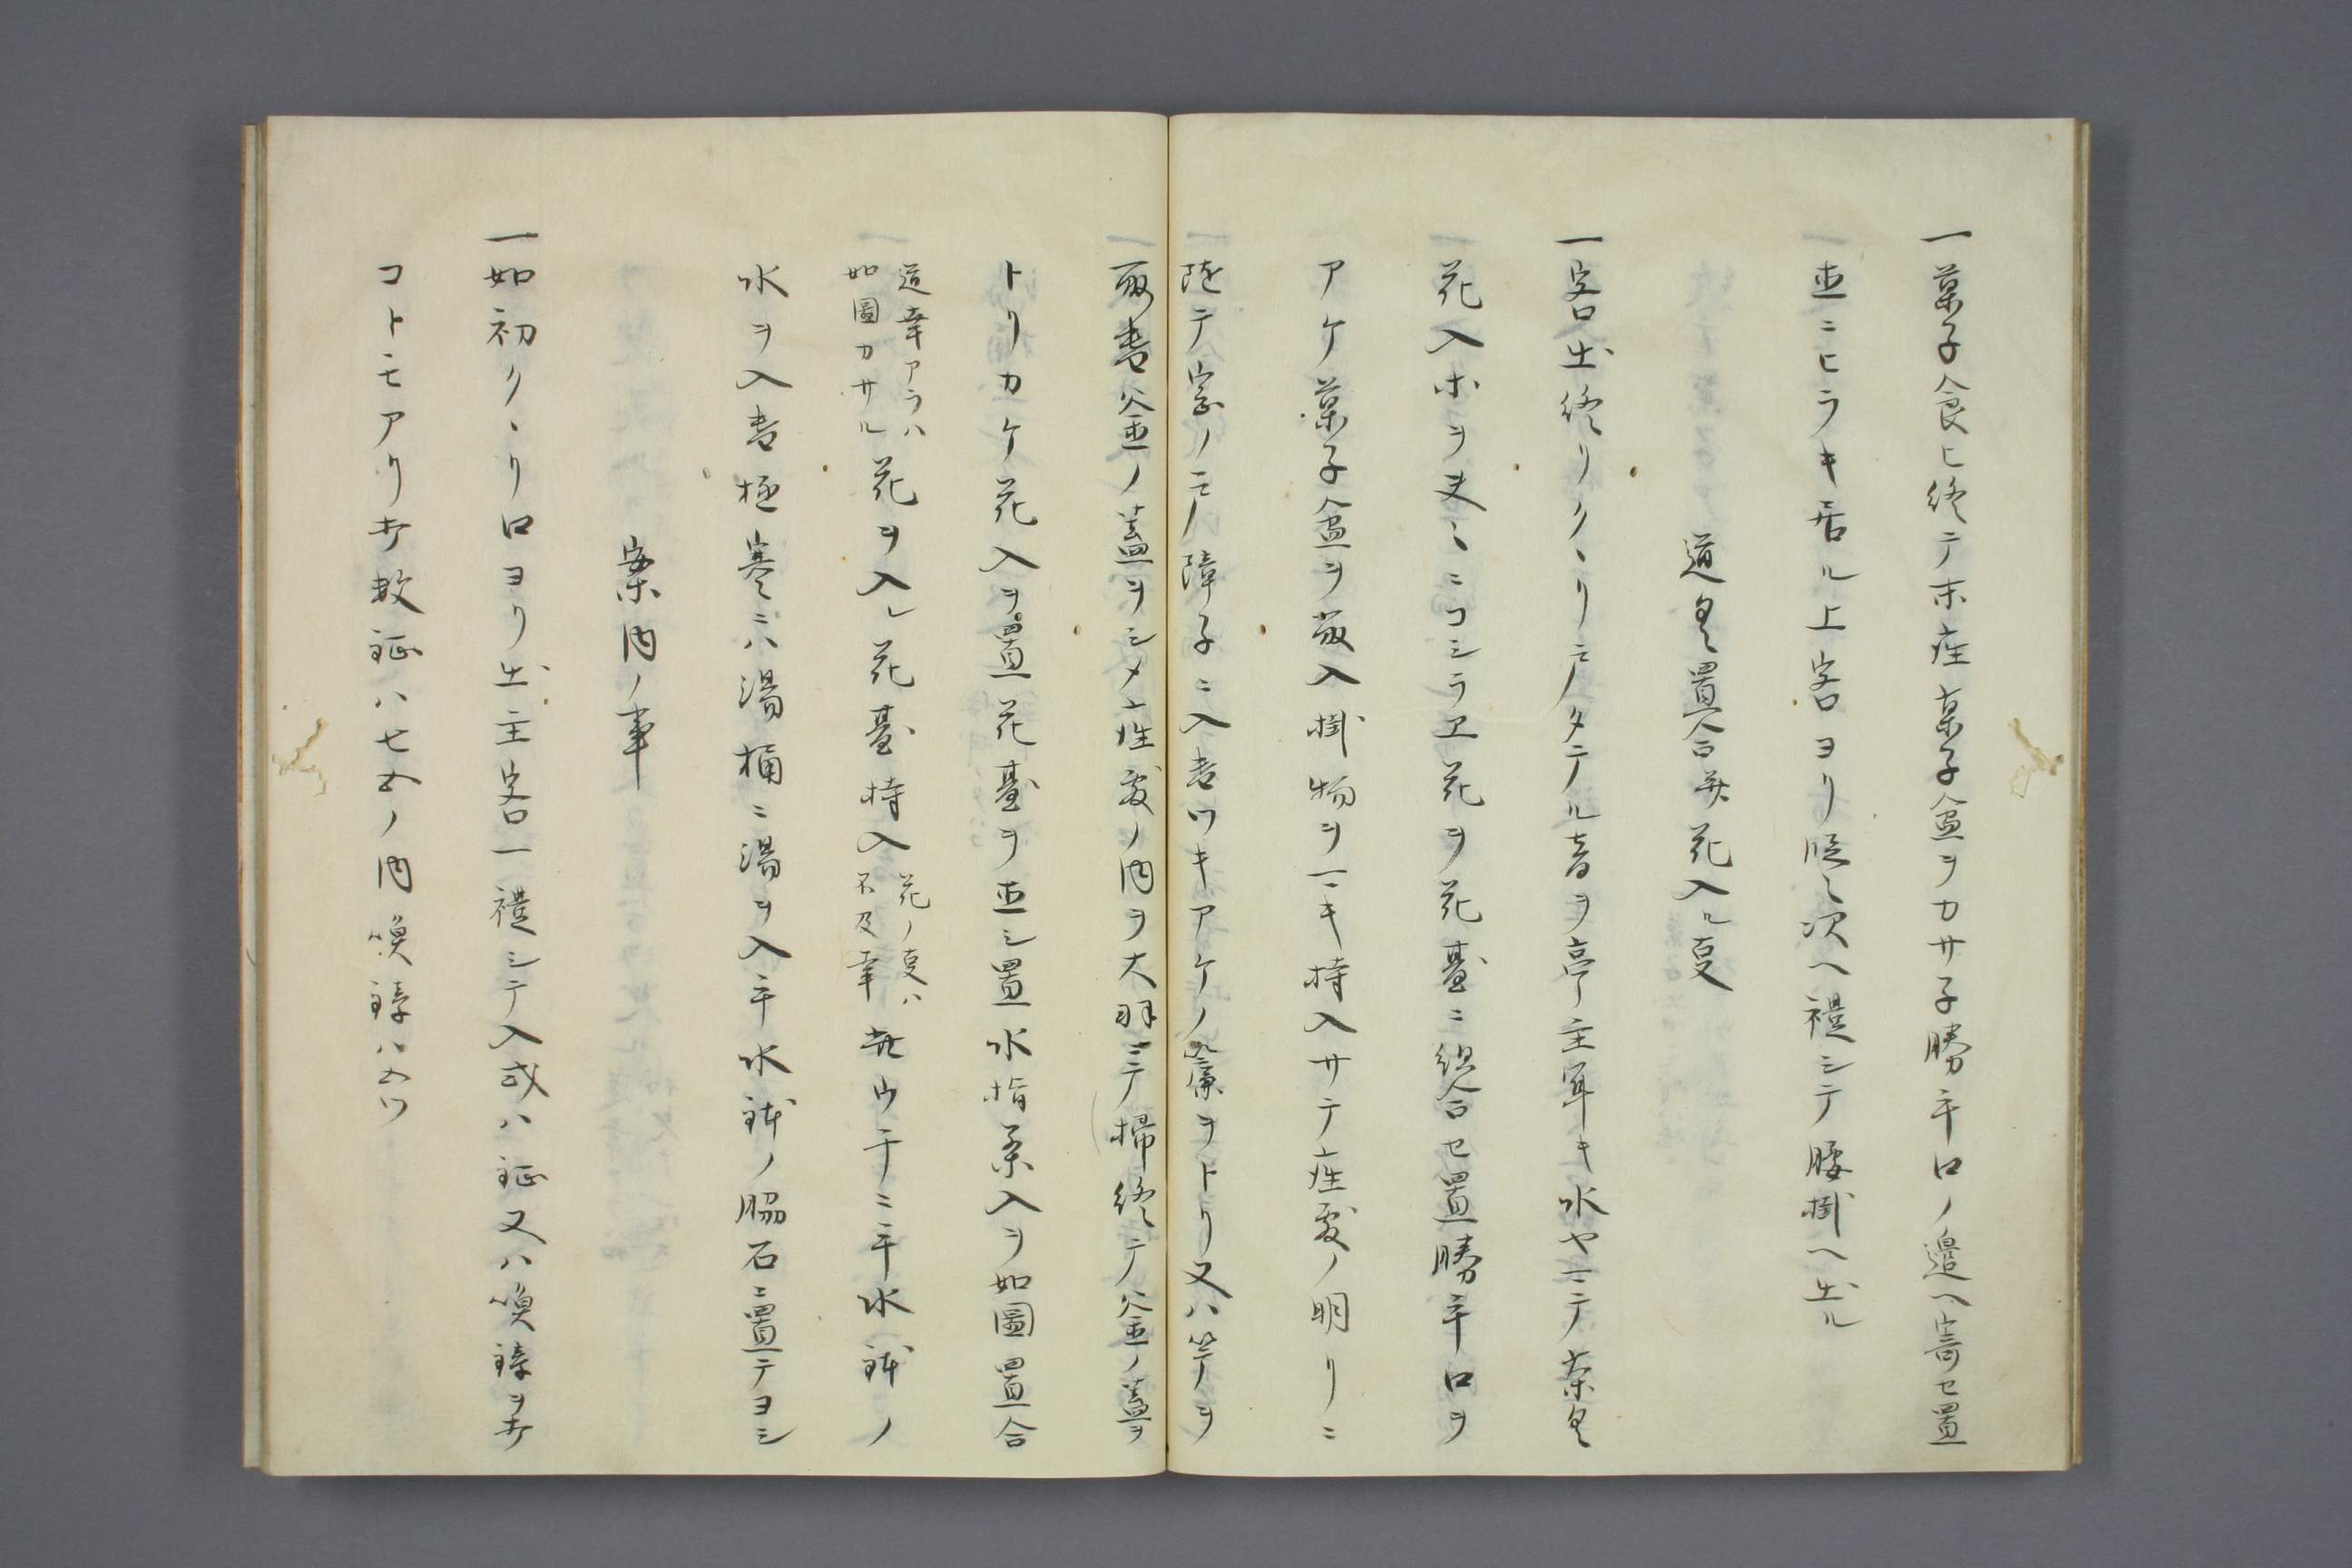 一菓子食ヒ終テ末座菓子盆ヲカサ子勝手口ノ邉ヘ寄セ置
並ニヒラキ居ル上客ヨリ段〻次ヘ禮シテ腰掛ヘ出ル
道具置合并花入ル叓
一客出終リクヽリ戸タテル音ヲ亭主耳キ水ヤニテ茶具
花入ホヲ夫〻ニコシラヱ花ヲ花臺ニ組合セ置勝手口ヲ
アケ菓子盆ヲ取入掛物ヲ一ニキ持入サテ座敷ノ明リニ
随テ窓ノ戸障子ニ入者ツキアケノ簾ヲトリ又ハ竿ヲ
取者釜ノ蓋ヲシメ座敷ノ内ヲ大羽ニテ掃終テ釜ノ蓋ヲ
トリカケ花入ヲ置花臺ヲ並シ置水指茶入ヲ如圖置合
道幸アラハ
如圖カサル
花ヲ入レ花臺持入
花ノ叓ハ
不及幸
無ウチニ手水鉢ノ
水ヲ入者極寒ニハ湯桶ニ湯ヲ入手水鉢ノ脇石ニ置テヨシ
案内ノ事
一如初クヽリ口ヨリ出主客一禮シテ入或ハ鉦又ハ喚鐘ヲ打
コトモアリ打数鉦ハ七五ノ内喚鐘ハ五ツ